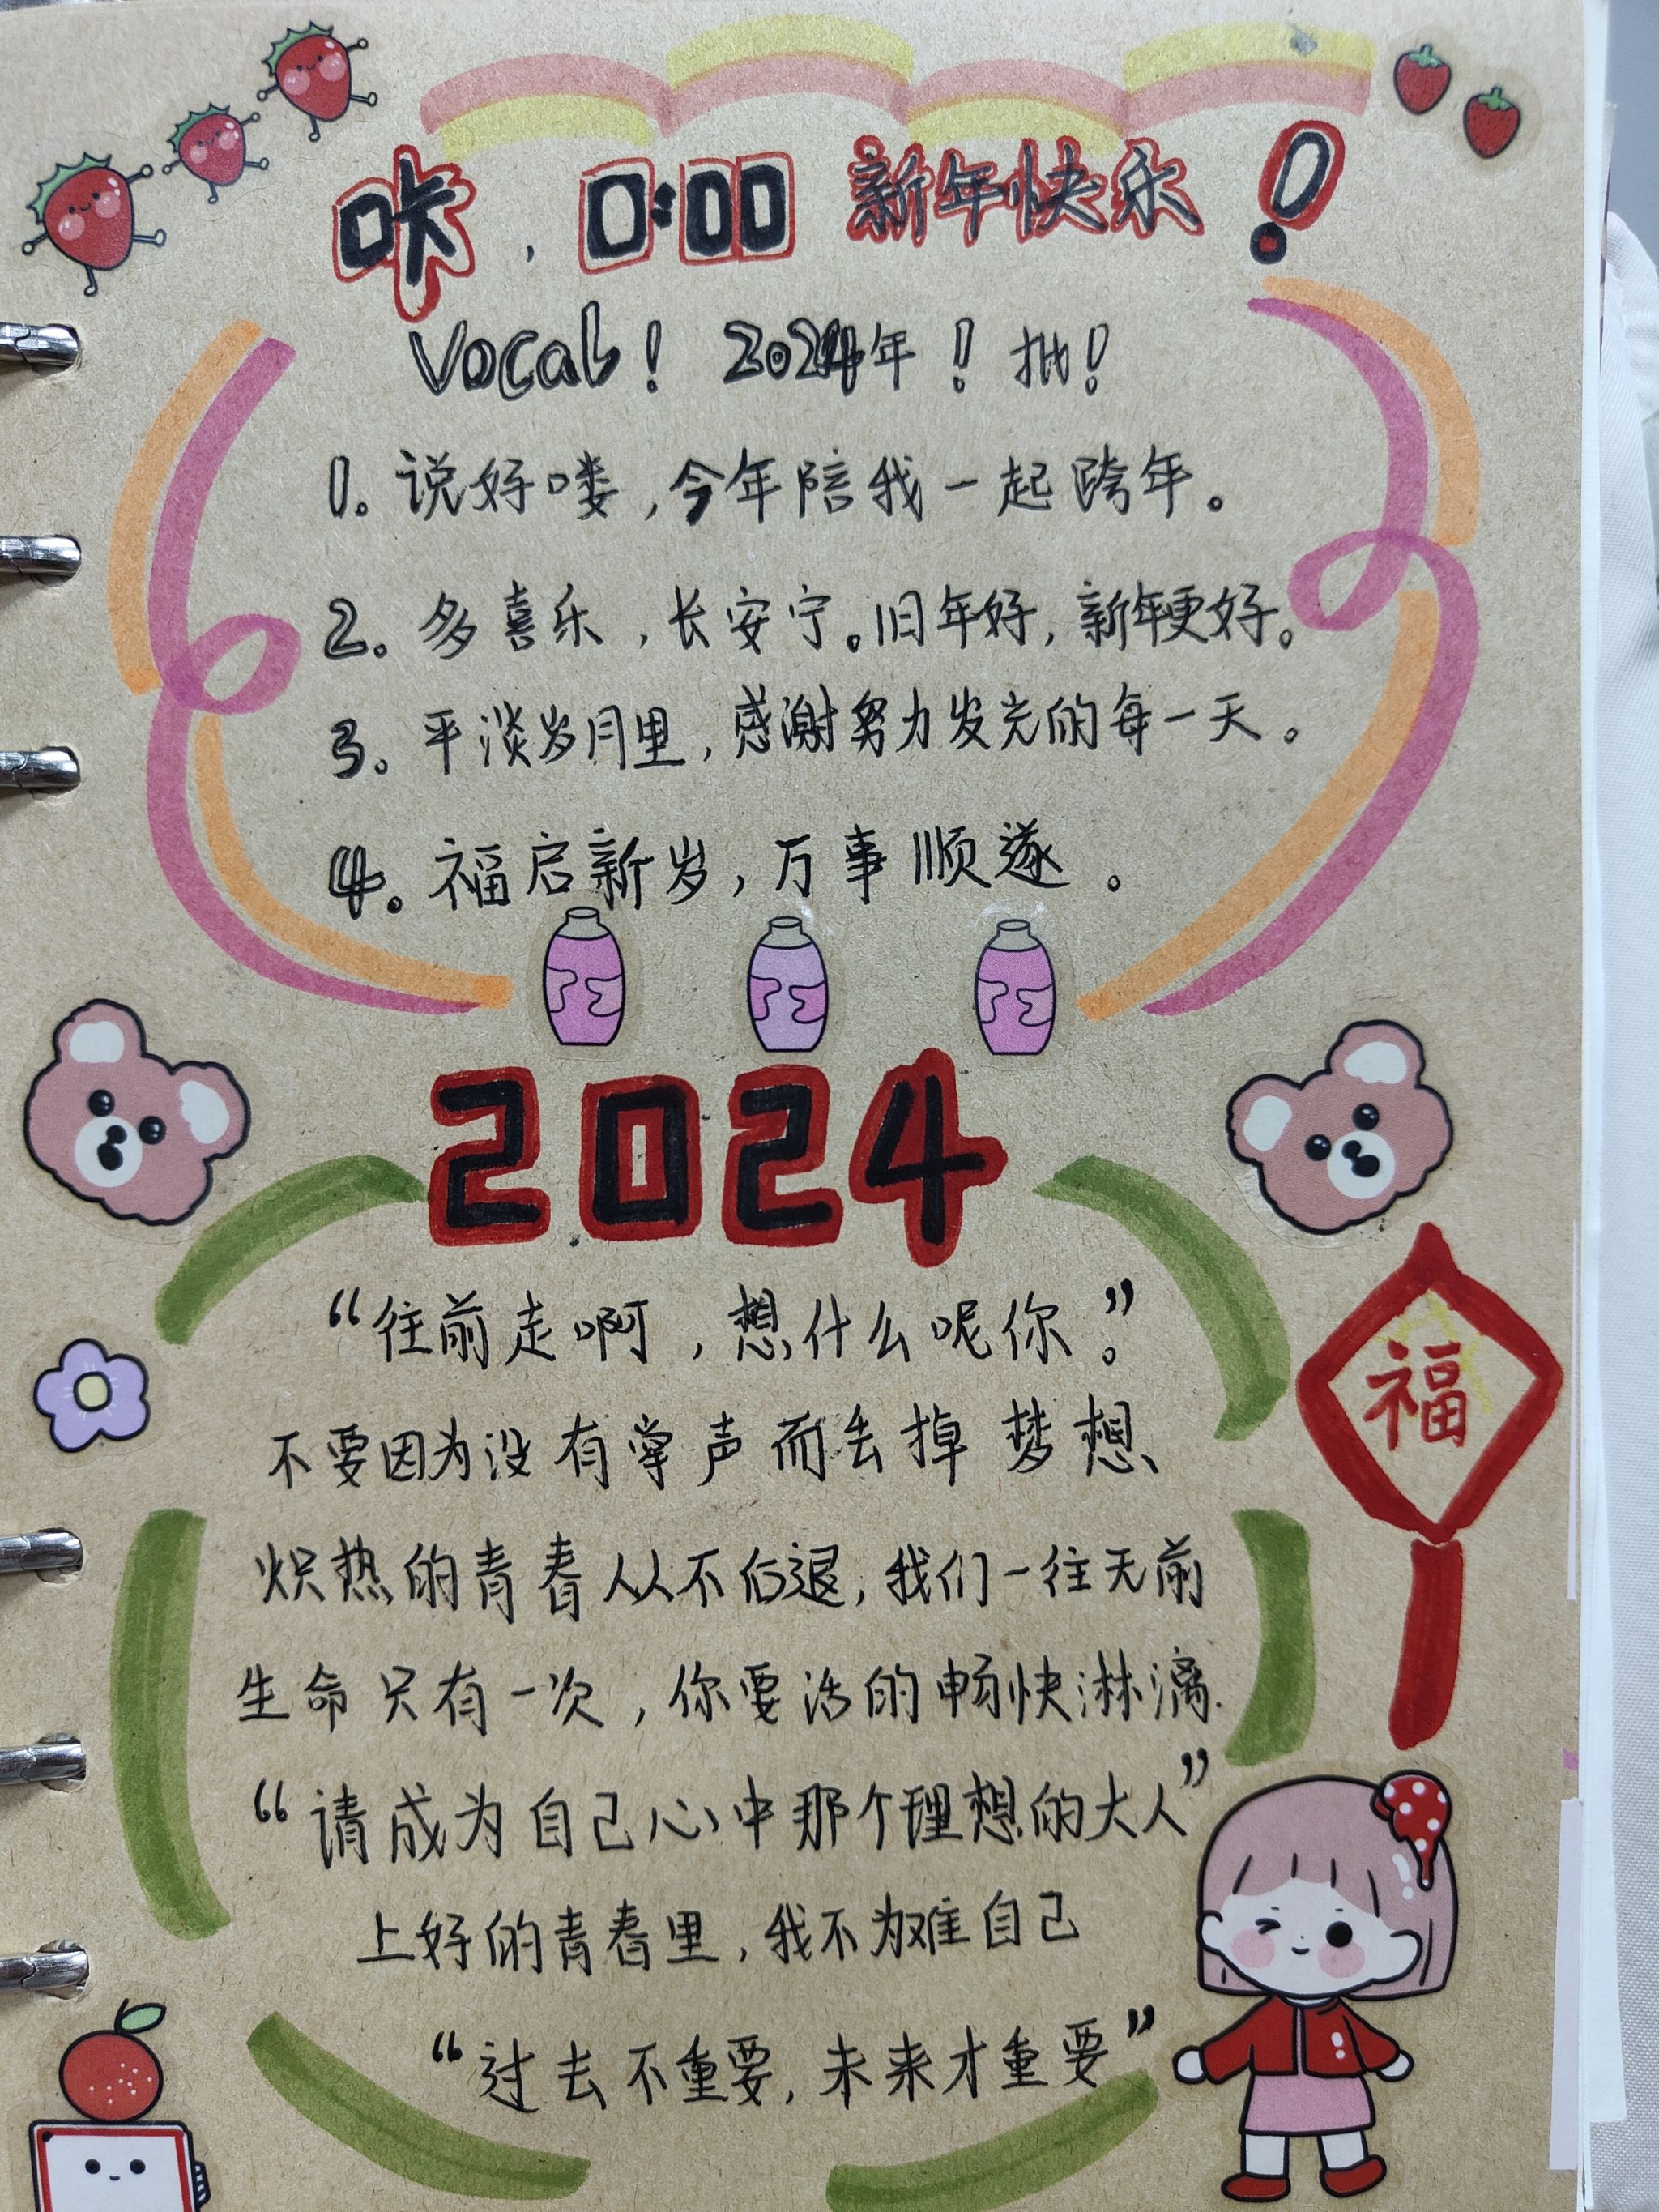 咔,0:00新年快乐!
Vocal! 2024年! 批!
1。说好喽,今年陪我一起跨年。
2。多喜乐,长安宁。旧年好,新年更好。
3。平淡岁月里,感谢努力发光的每一天。
4。福启新岁,万事顺遂。
2024
“往前走啊,想什么呢你。”
福
不要因为没有掌声而丢掉梦想
炽热的青春从不后退,我们一往无前
生命只有一次,你要活的畅快淋漓.
“请成为自己心中那个理想的大人”
上好的青春里,我不为难自己
“过去不重要,未来才重要”